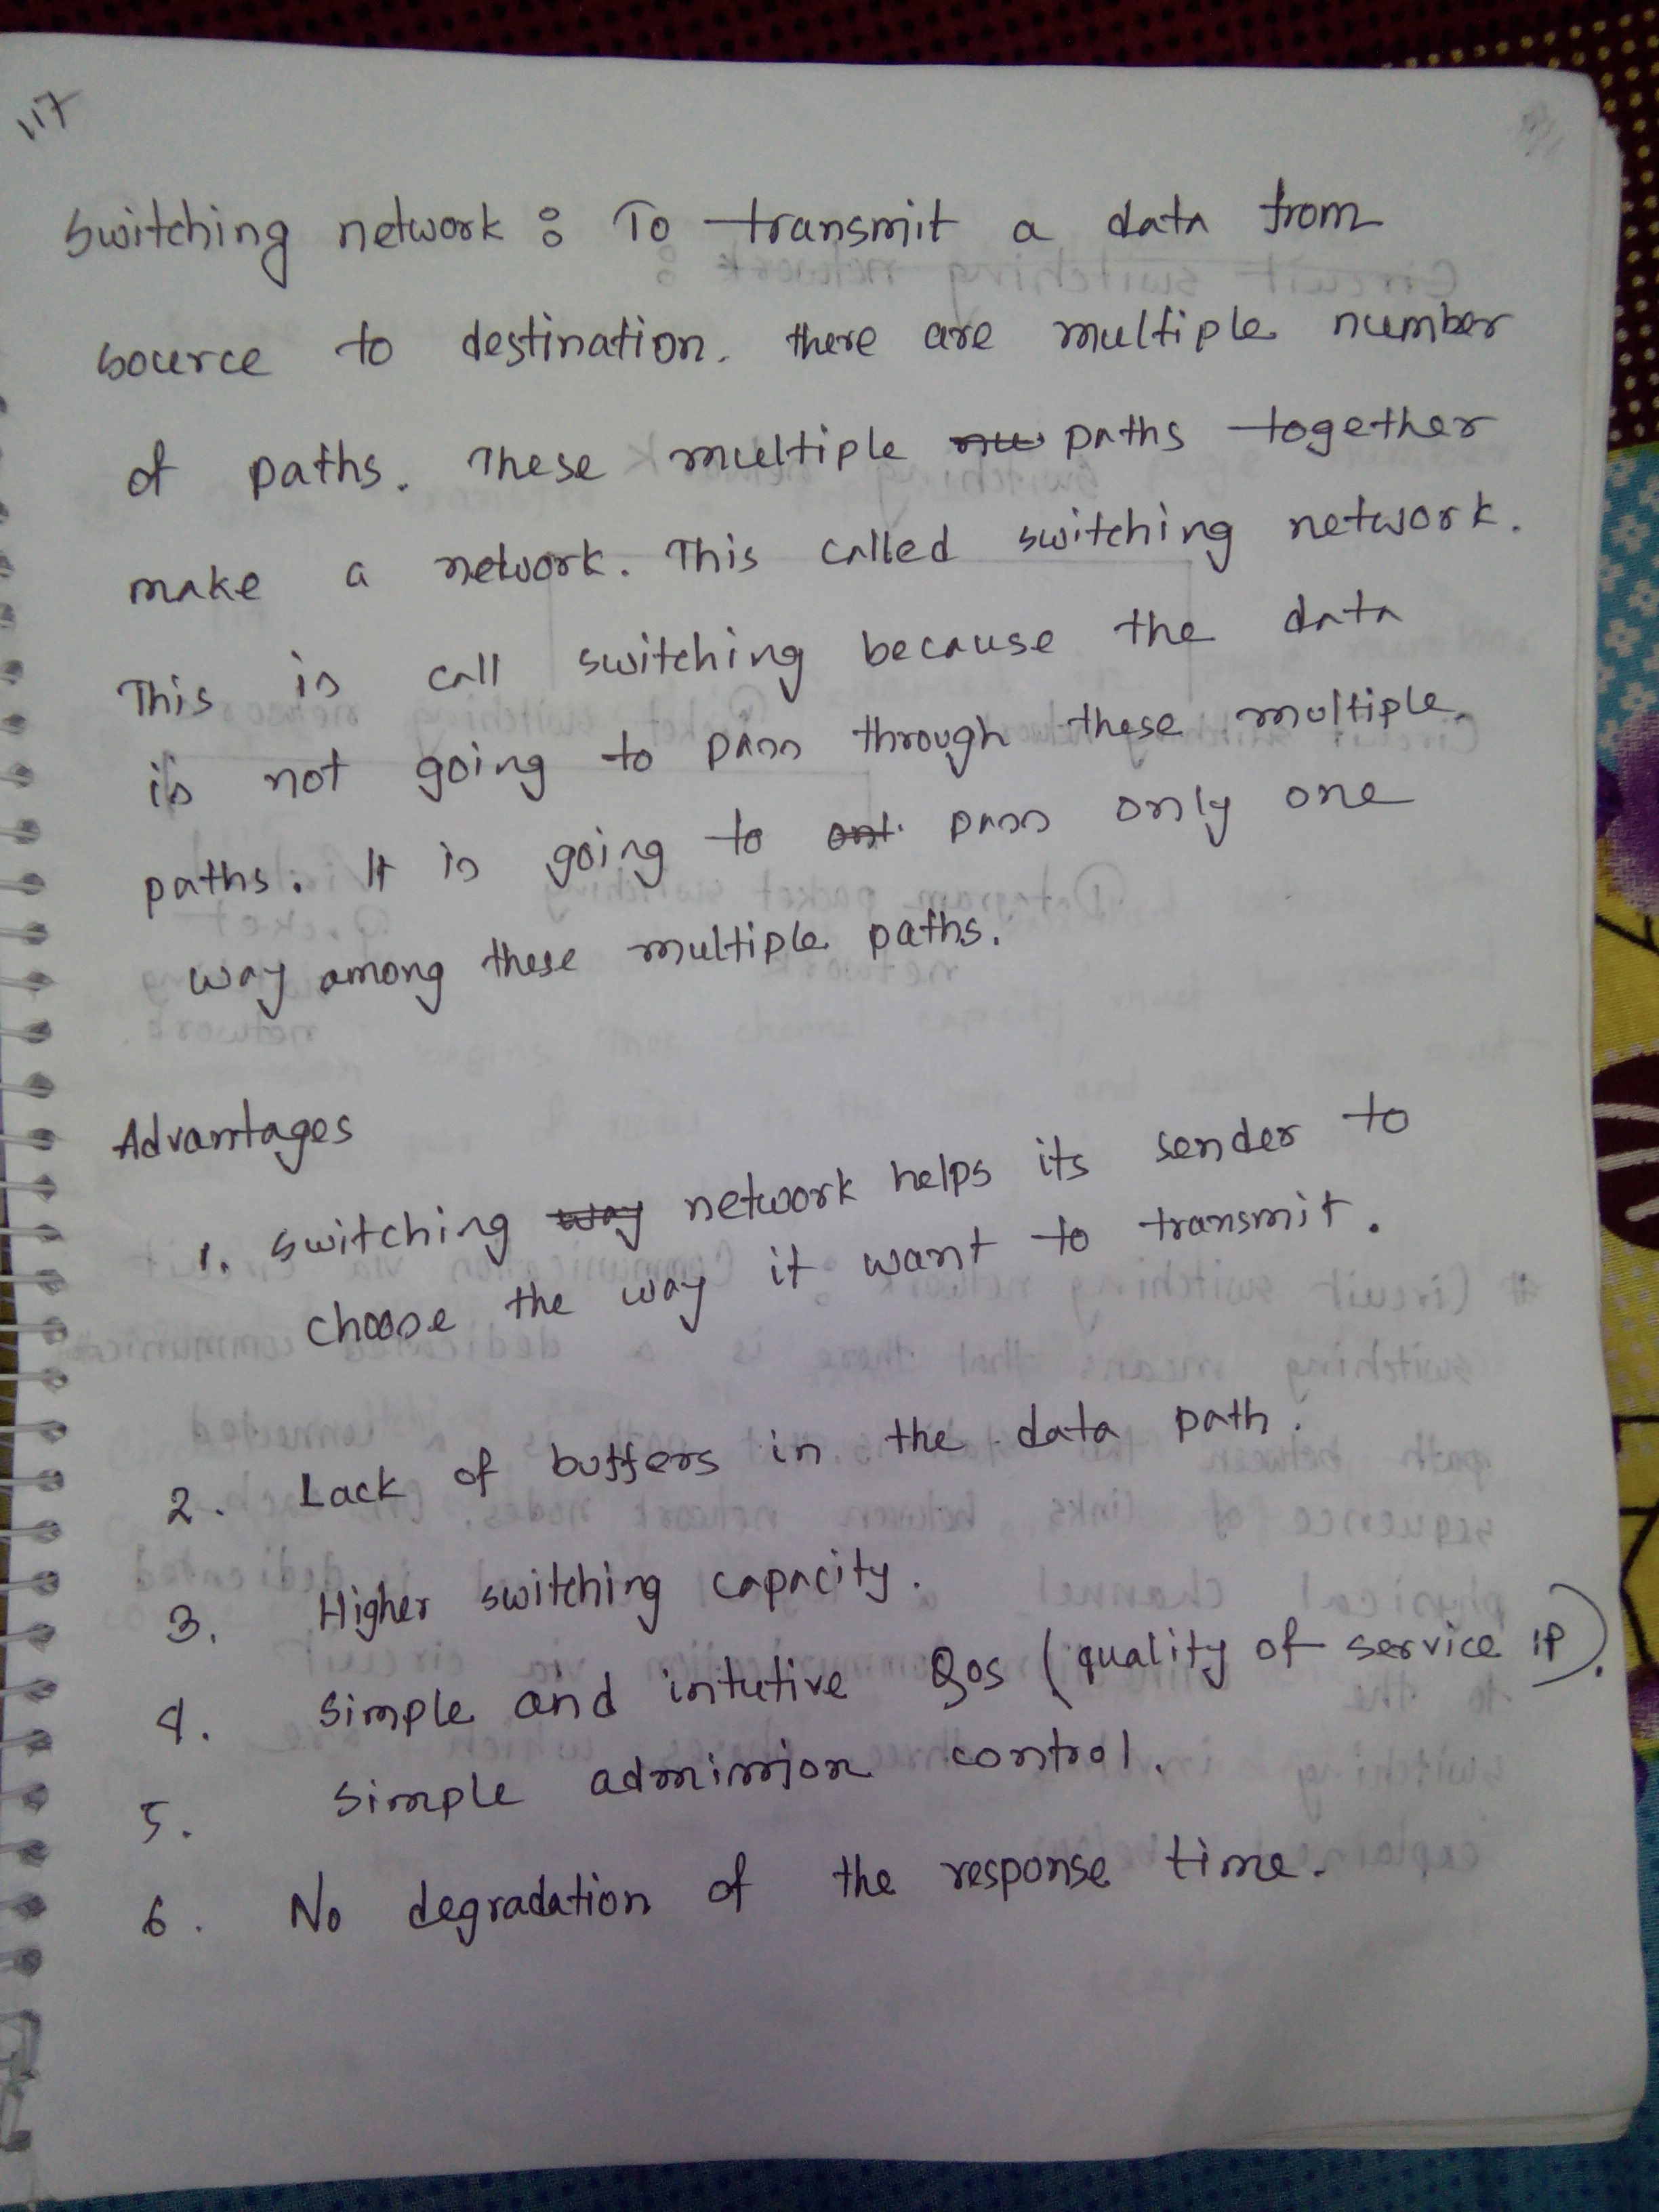 117
Switching network : To transmit a data from
source to destination. there are multiple number
of paths. These multiple paths together
make a network. This called switching network.
This is call switching because the data
is not going to pass through these multiple
paths. It is going to pass only one
way among these multiple paths.
Advantages
1. Switching way network helps its sender to
choose the way it want to transmit.
2. Lack of buffers in the data path.
3. Higher switching capacity.
4. Simple and intutive QoS (quality of service IP).
5. Simple admission control.
6. No degradation of the response time.